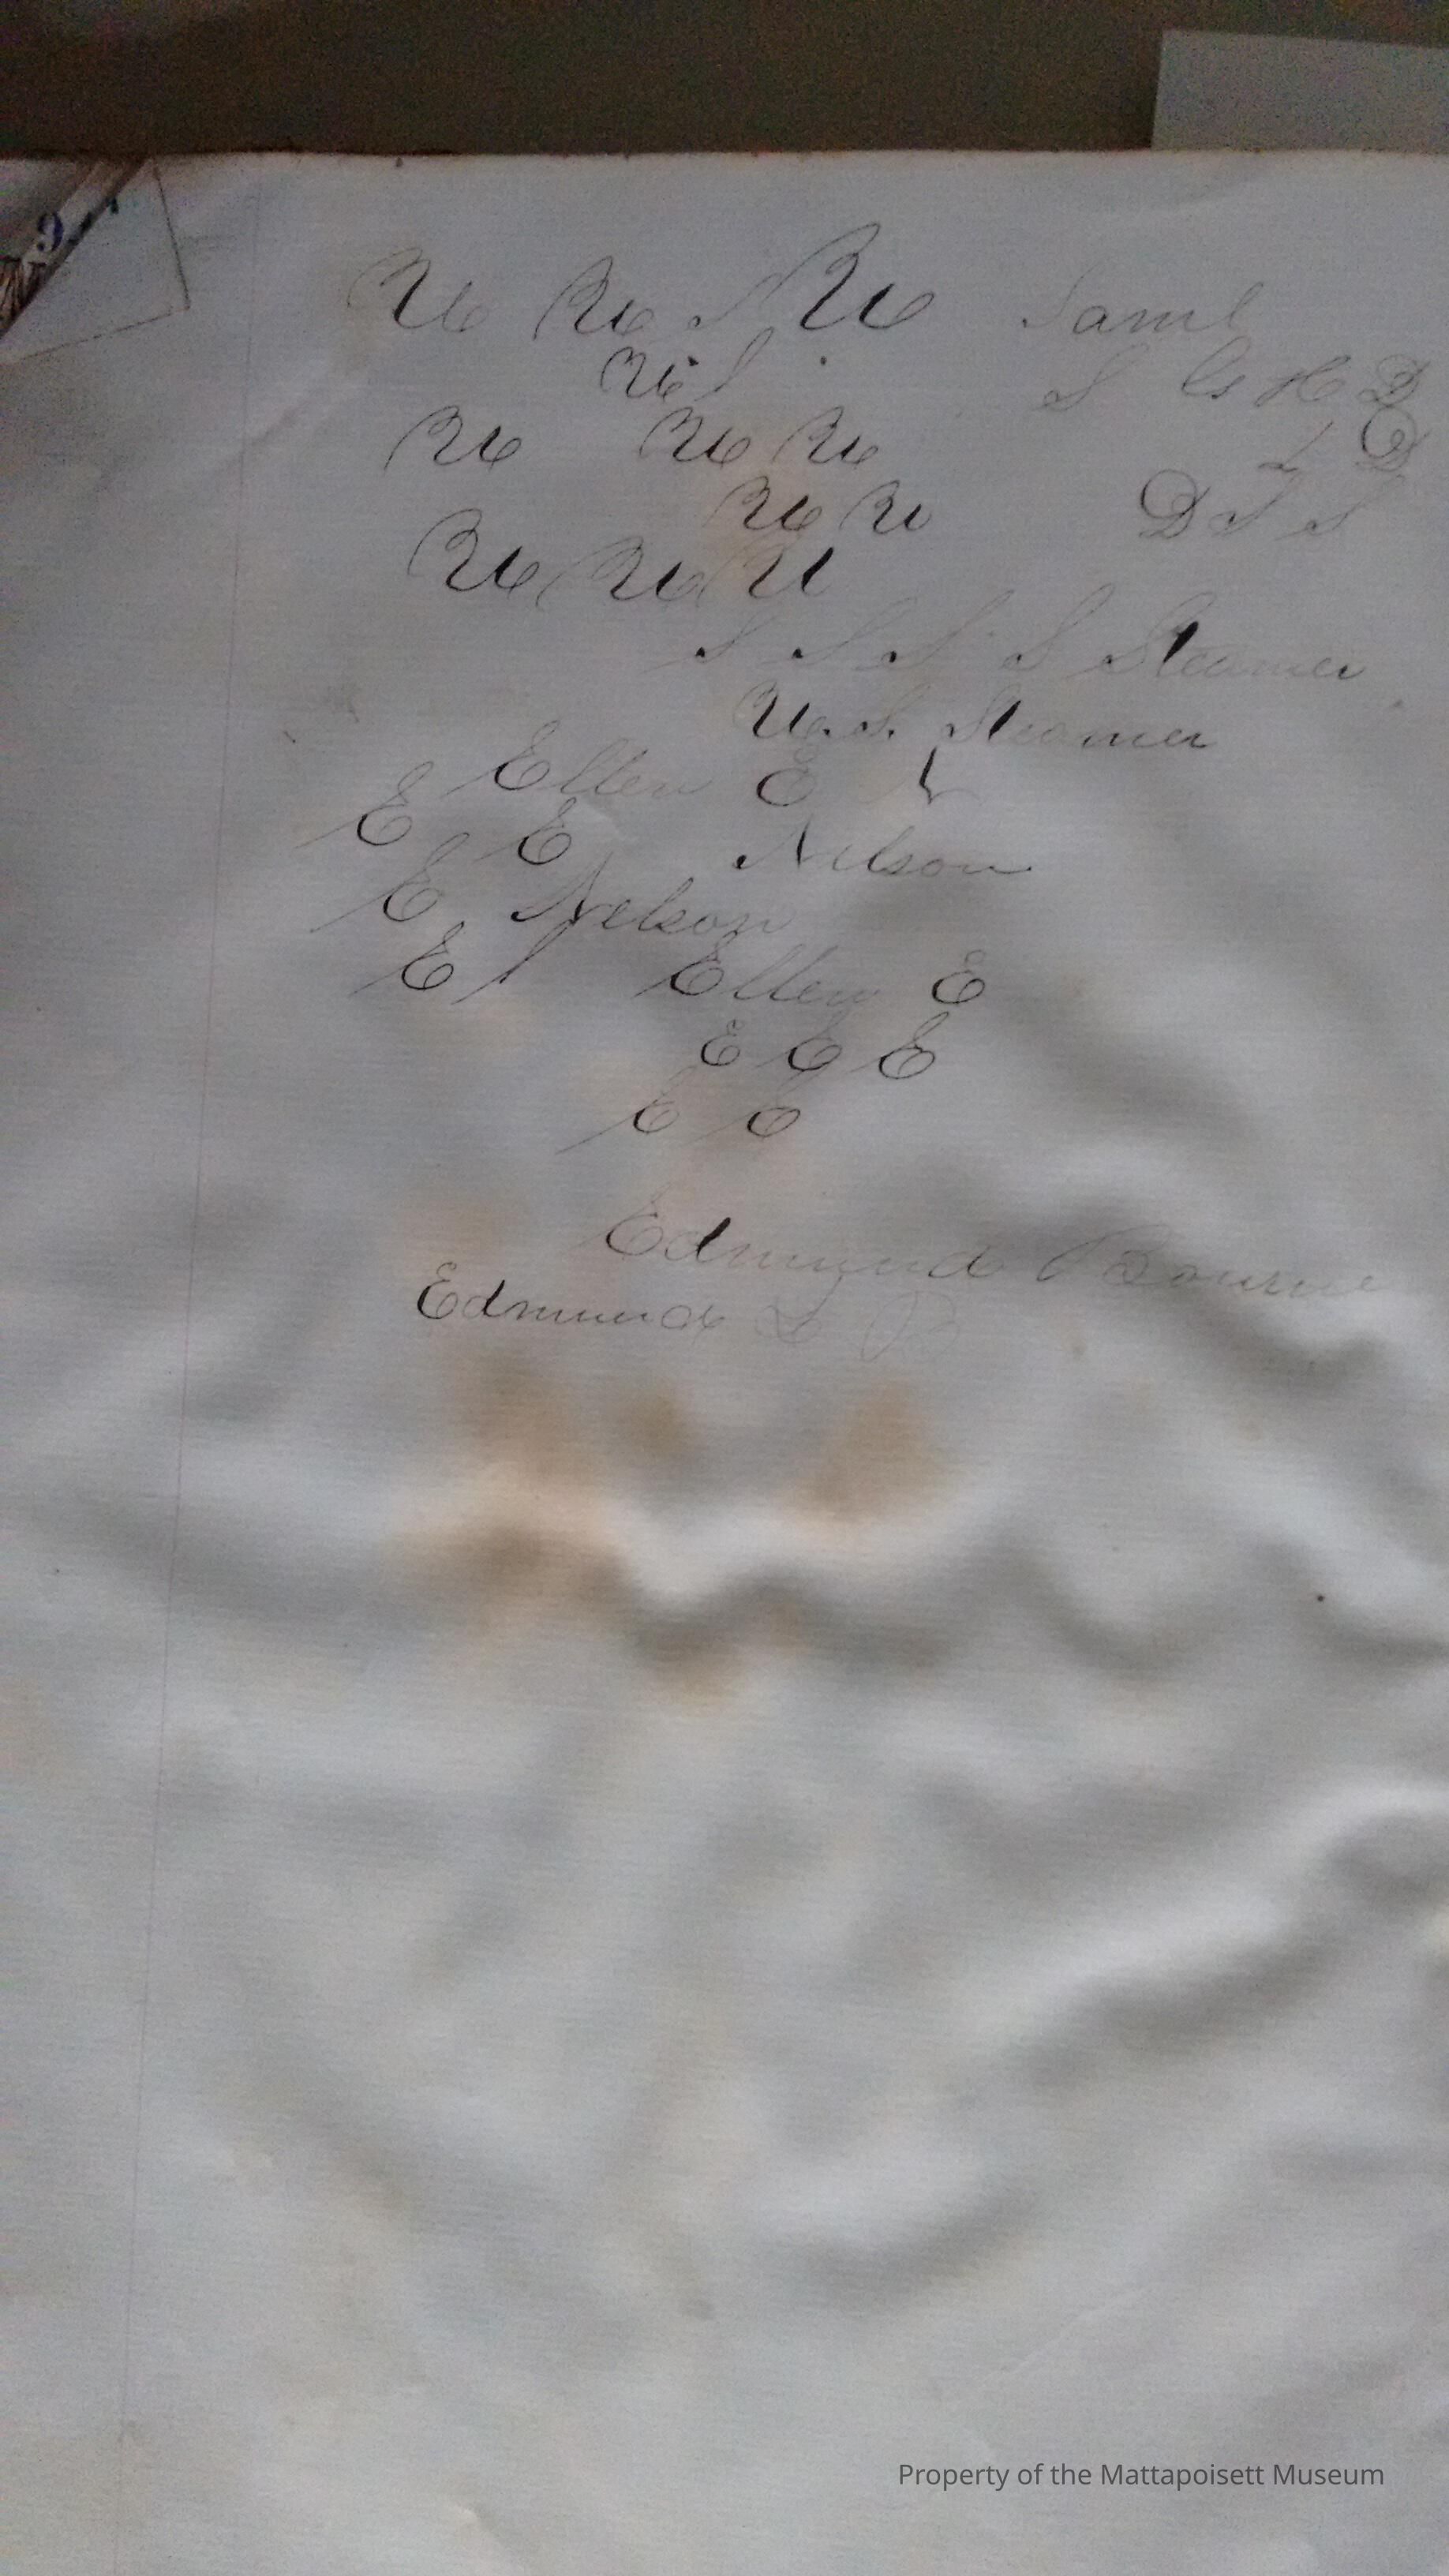 U U U Saml
U S G H D
U U U L D
U U D S S
U U U
S S S S Steamer
U. S. Steamer
Ellen E N
E E Nelson
E Nelson
E Ellen E
E E E
E E
Edmund Bourne
Edmund S B
Property of the Mattapoisett Museum